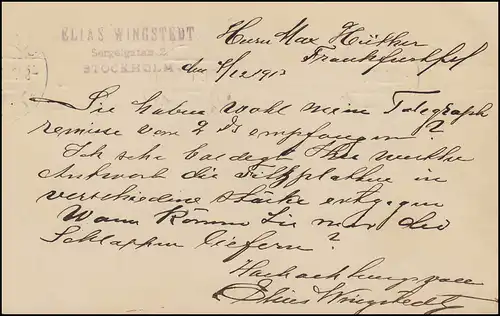 ELIAS WINGSTEDT
Sergelgatan 2.
STOCKHOLM.
Herrn Max Hüther
Frankfurt
den 4/12 1913
Sie haben wohl meine Telegraph
remisse vom 2 ds empfangen?
Ich sehe baldegt Ihre werthe
Antwort die Filzplatten in
verschiedene Stärke entgegen
Wann können Sie mir die
Schlappen liefern?
Hochachtungsvoll
Elias Wingstedt